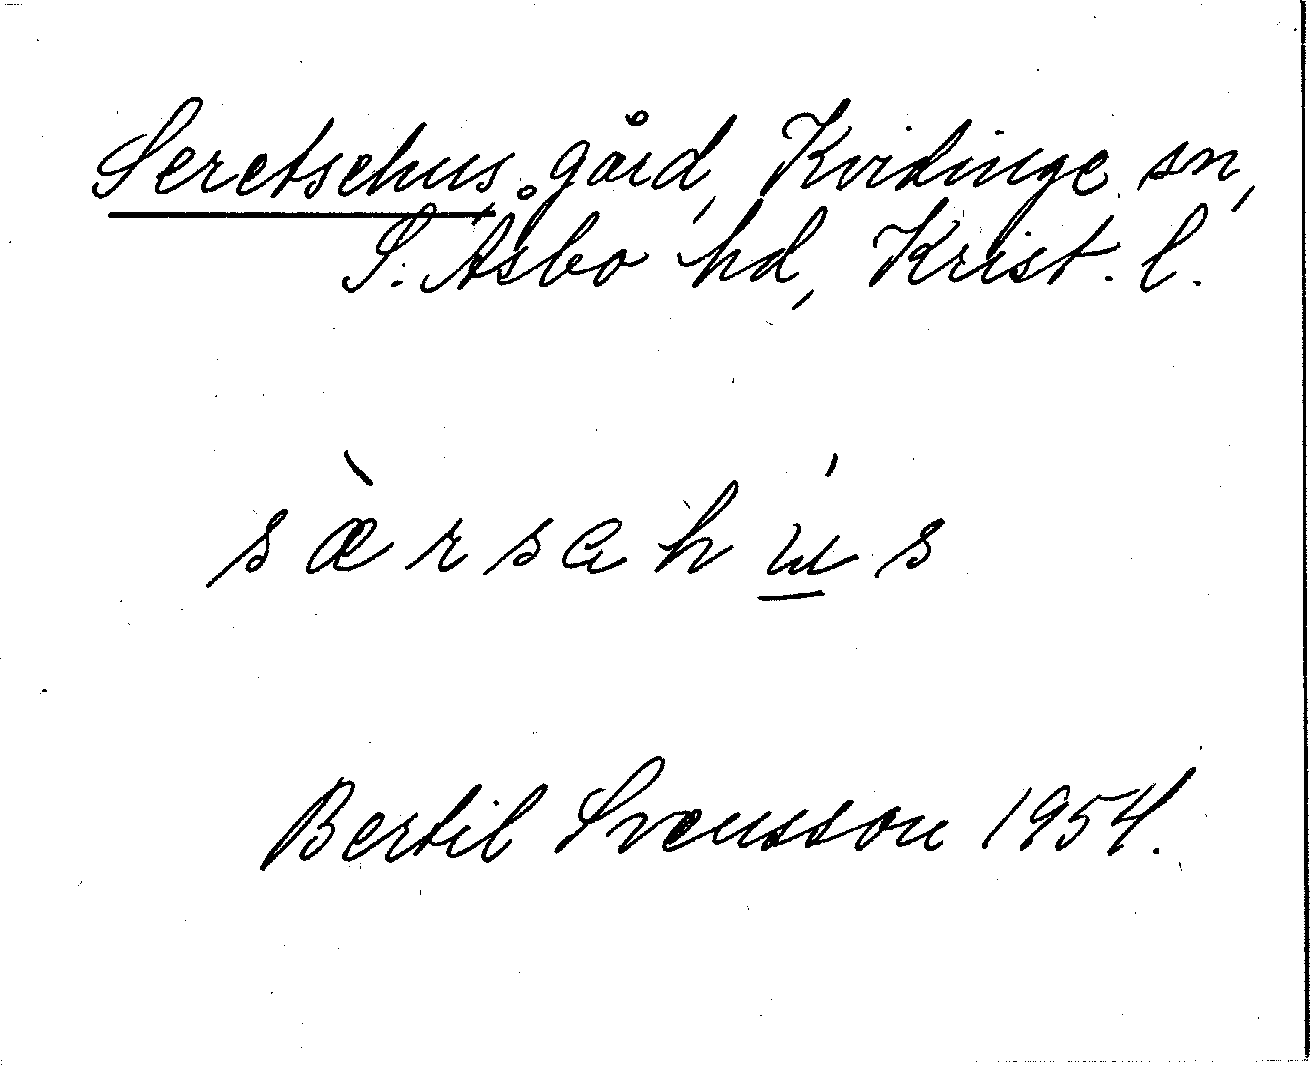 Seretsehus gård, Kvidinge sn,
S. Åsbo hd, Krist. l.
sæ̀rsahú̲s
Bertil Svensson 1954.